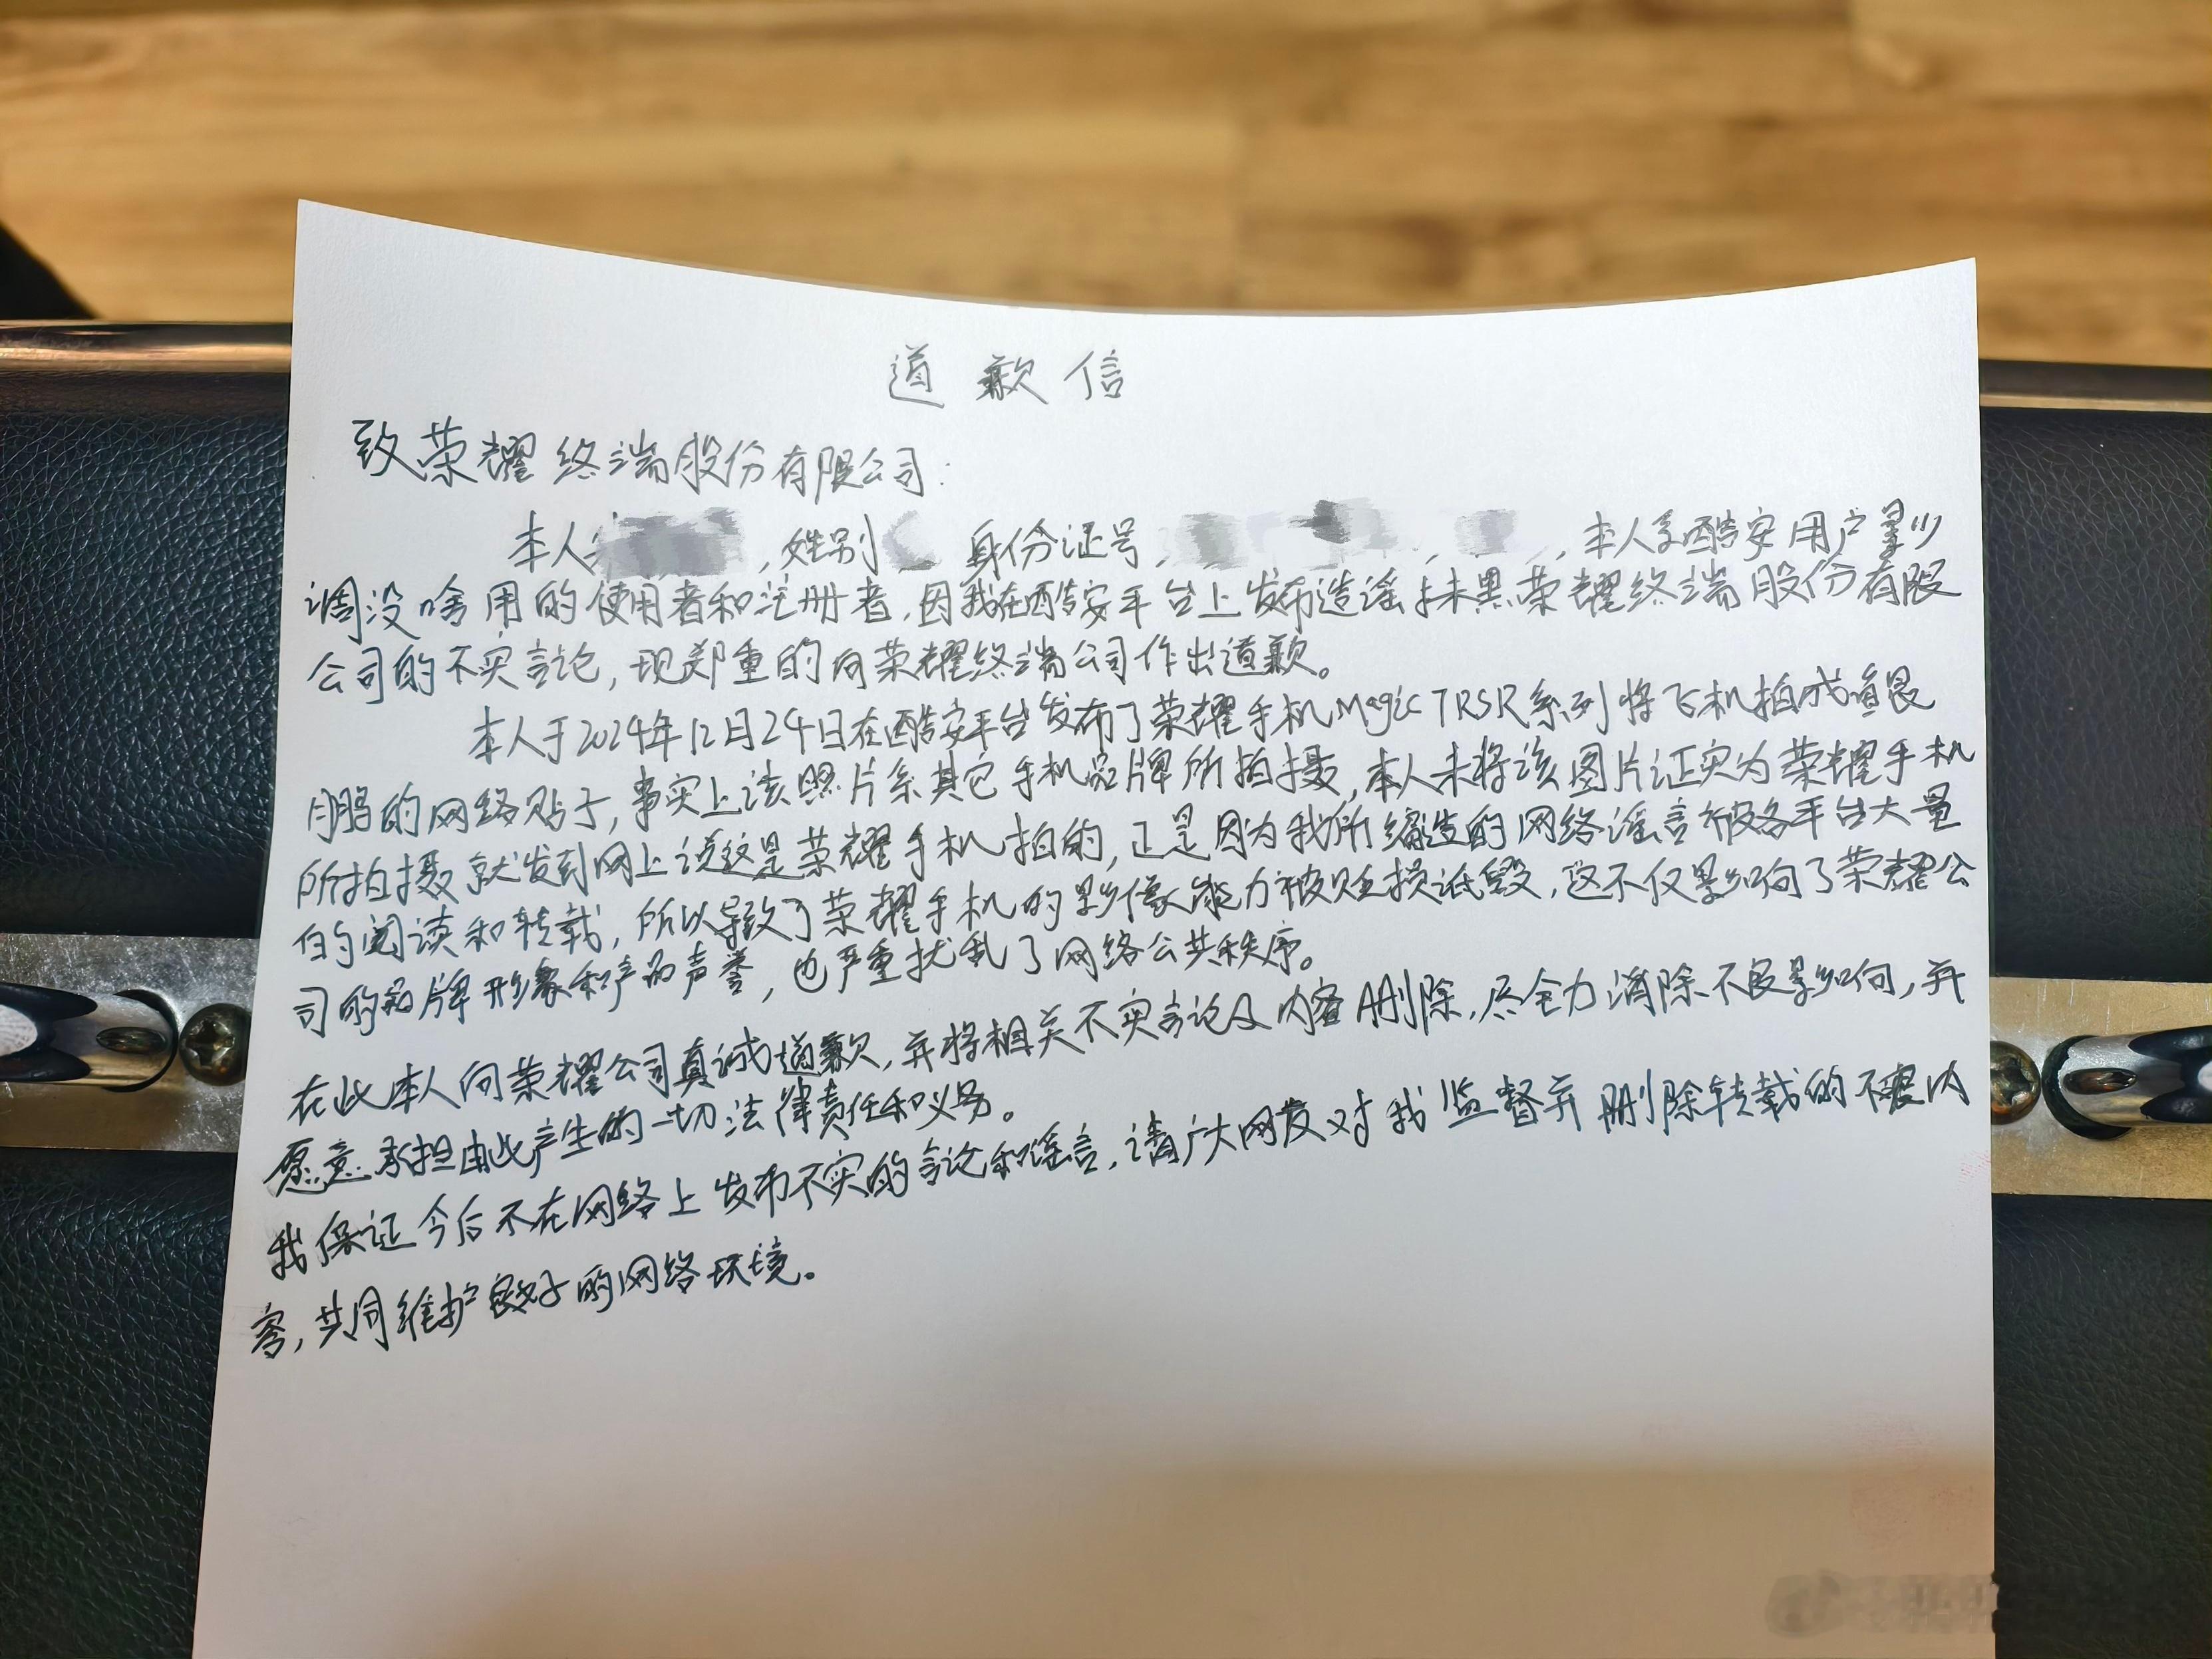 道歉信
致荣耀终端股份有限公司：
本人，姓别 身份证号，本人系酷安用户影
调没啥用的使用者和注册者，因我在酷安平台上发布造谣抹黑荣耀终端股份有限
公司的不实言论，现郑重的向荣耀终端公司作出道歉。
本人于2024年12月24日在酷安平台发布了荣耀手机Magic7RSR系列将飞机拍成
鹏的网络贴子，事实上该照片系其它手机品牌所拍摄，本人未将该图片证实为荣耀手机
所拍摄就发到网上说这是荣耀手机拍的，正是因为我所编造的网络谣言被各平台大量
的阅读和转载，所以导致了荣耀手机的影像能力被贬损诋毁，这不仅影响了荣耀公
司的品牌形象和产品声誉，也严重扰乱了网络公共秩序。
在此本人向荣耀公司真诚道歉，并将相关不实言论及内容删除，尽全力消除不良影响，并
愿意承担由此产生的一切法律责任和义务。
我保证今后不在网络上发布不实的言论和谣言，请广大网友对我监督并删除转载的不实内
容，共同维护良好的网络环境。